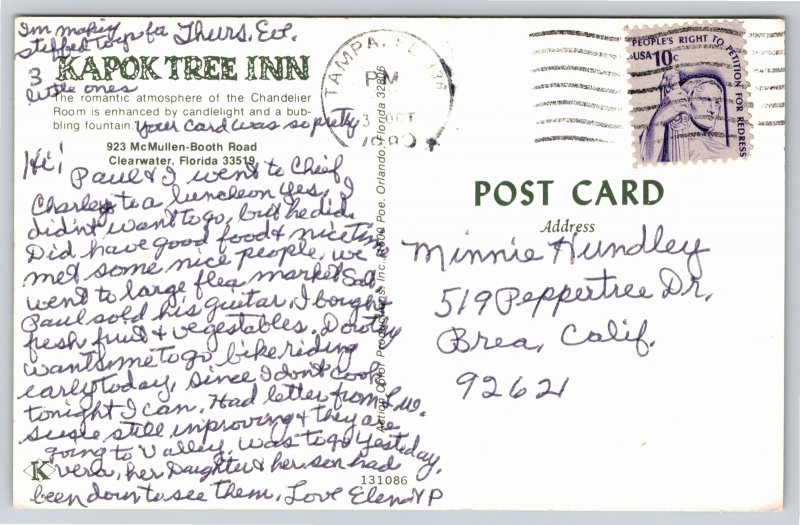 I'm making Thurs. Eve.
stuffed toys for
3
KAPOK TREE INN
little ones
The romantic atmosphere of the Chandelier
Room is enhanced by candlelight and a bub-
bling fountain. Your card was so pretty
923 McMullen-Booth Road
Clearwater, Florida 33519
Hi!
Paul & I went to Chief
Charley to a luncheon yes, I
didn't want to go, but he did.
Did have good food & nice time
met some nice people, we
went to large flea market Sat.
Paul sold his guitar, I bought
fresh fruit & vegetables. Dorothy
wants me to go bike riding
early today, since I don't cook
tonight I can. Had letter from
Susie still improving & they are
going to Valley, was to go yesterday,
Vera, her Daughter & her son had
been down to see them, Love Elen & P
K
131086
Action Color Productions, Inc., Poe, Orlando, Florida 32806
TAMPA, FL 336
PM
3 OCT
1980
PEOPLE'S RIGHT TO PETITION FOR REDRESS
USA 10c
POST CARD
Address
Minnie Hundley
519 Peppertree Dr.
Brea, Calif.
92621